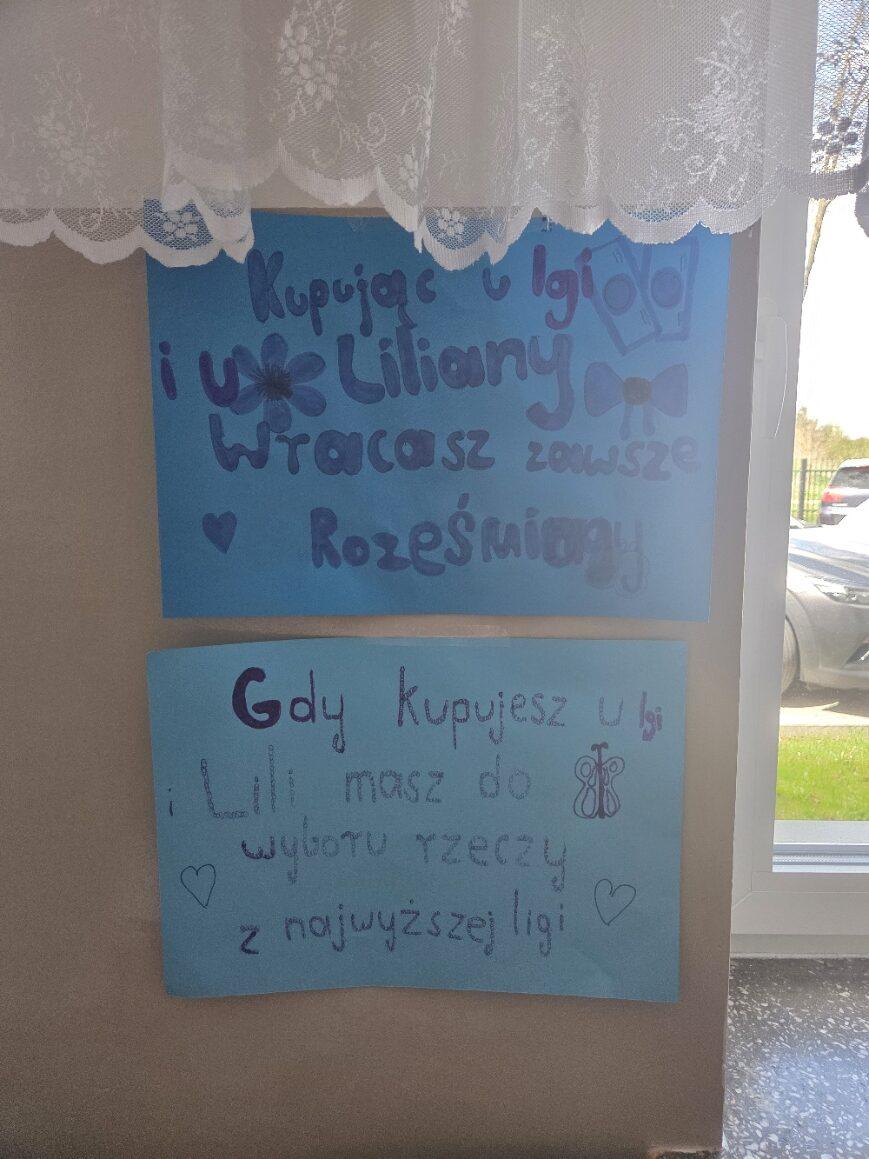 Kupując u Igi
i u Liliany
Wracasz zawsze
Rozęśmiany
Gdy kupujesz u Igi
i Lili masz do
wyboru rzeczy
z najwyższej ligi